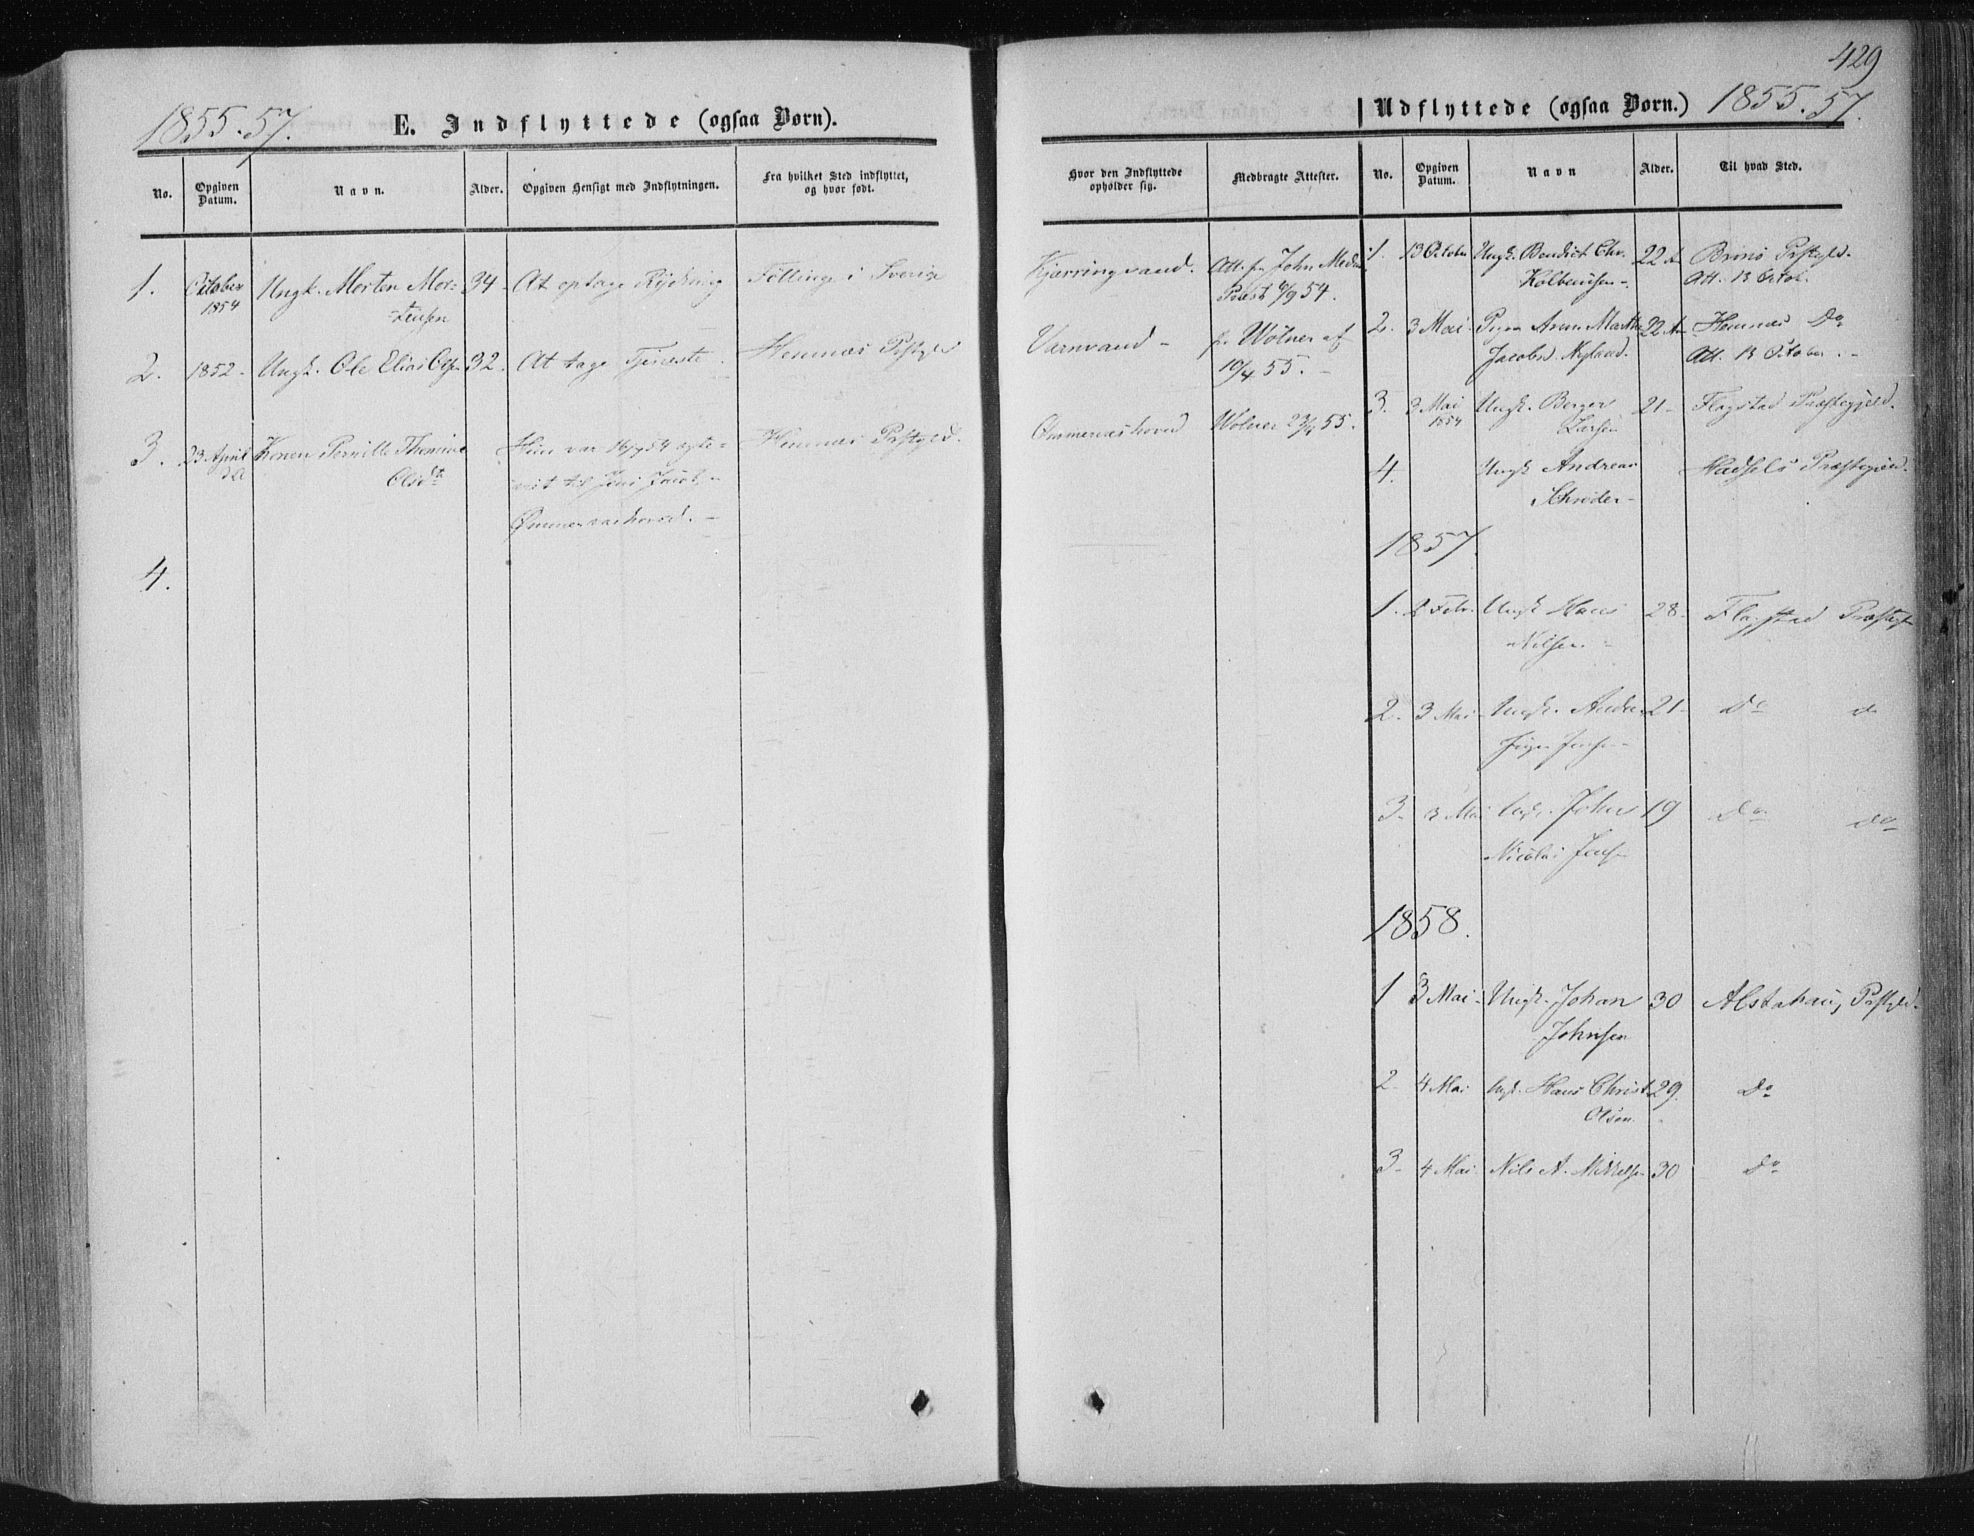 1855-57.
E. Indflyttede (ogsaa Børn).
No.
Opgiven Datum.
Navn.
Alder.
Opgiven Hensigt med Indflytningen.
Fra hvilket Sted indflyttet, og hvor født.
1.
October 1854
Ungk. Morten Mor=
tensen
34
At optage Rydning
Föllinge i Sverige
2.
1852
Ungk. Ole Elias Ols
32.
At tage Tjeneste
Hemnæs Præstgjeld
3.
23 April
Konen Pernille Thomine
Olsdt
Hun var 16/7 54 ægte=
viet til Jens Jacob
hoved.
Hemnæs Præstgjeld.
4.
429
Udflyttede (ogsaa Børn.) 1855.57.
Hvor den Indflyttede opholder sig.
Medbragte Attester.
No.
Opgiven Datum.
Navn
Alder.
Til hvad Sted.
Kjærringvand.
Att. fr. John
Præst 6/9 54.
Varnvand
fr. Wolner af
19/4 55.
Wolner 23/4 55.
1.
13 October
Ungk. Benedict Chr.
22
Brönö Præstgjld.
Att. 13 Octob.
2.
3 Mai
Pigen Anne Martha
Jacobsd. Nyland.
22
Hemnæs Do
Att. 13 October.
3.
3 Mai 1854
Ungk. Berger
Larsen
21
Flagstad Præstegjeld.
4.
Ungk Andreas
Schrøder
Hadsels Præstegjeld.
1857.
1.
2 Febr.
Ungk Hans
Nilsen
28
Flagstad Præstegj
2.
3 Mai
Ungk.
Jensen
21
Do
do
3
3 Mai
Ungk. Johan
Nicolai Jens
19
Do
do
1858.
1
3 Mai
Ungk. Johan
Johnsen
30
Alstahaug Præstgjeld.
2.
4 Mai
Ungk. Hans Christ
Olsen.
29.
Do
3
4 Mai
Nils A. Mikkelsen
30
Do